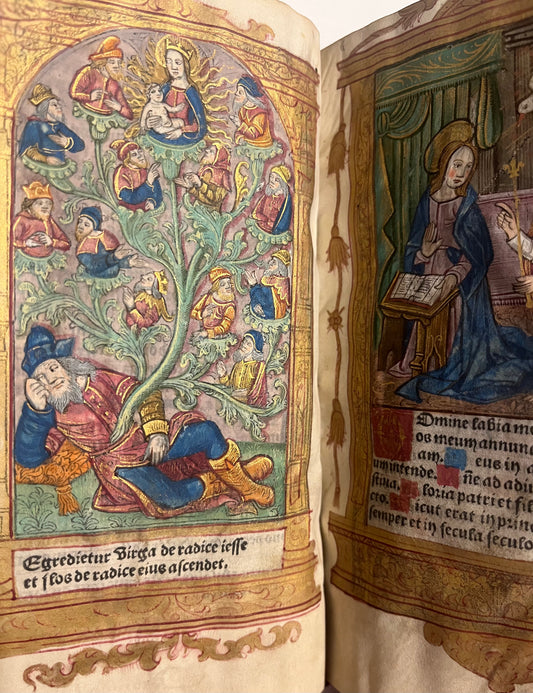 Egredietur Virga de radice iesse
et flos de radice eius ascendet.
Domine labia me
os meum annun
am. eus in a
um intende. ñe ad adiu
stiua. loria patri et fil
cto. icut erat in prin
semper et in secula seculo